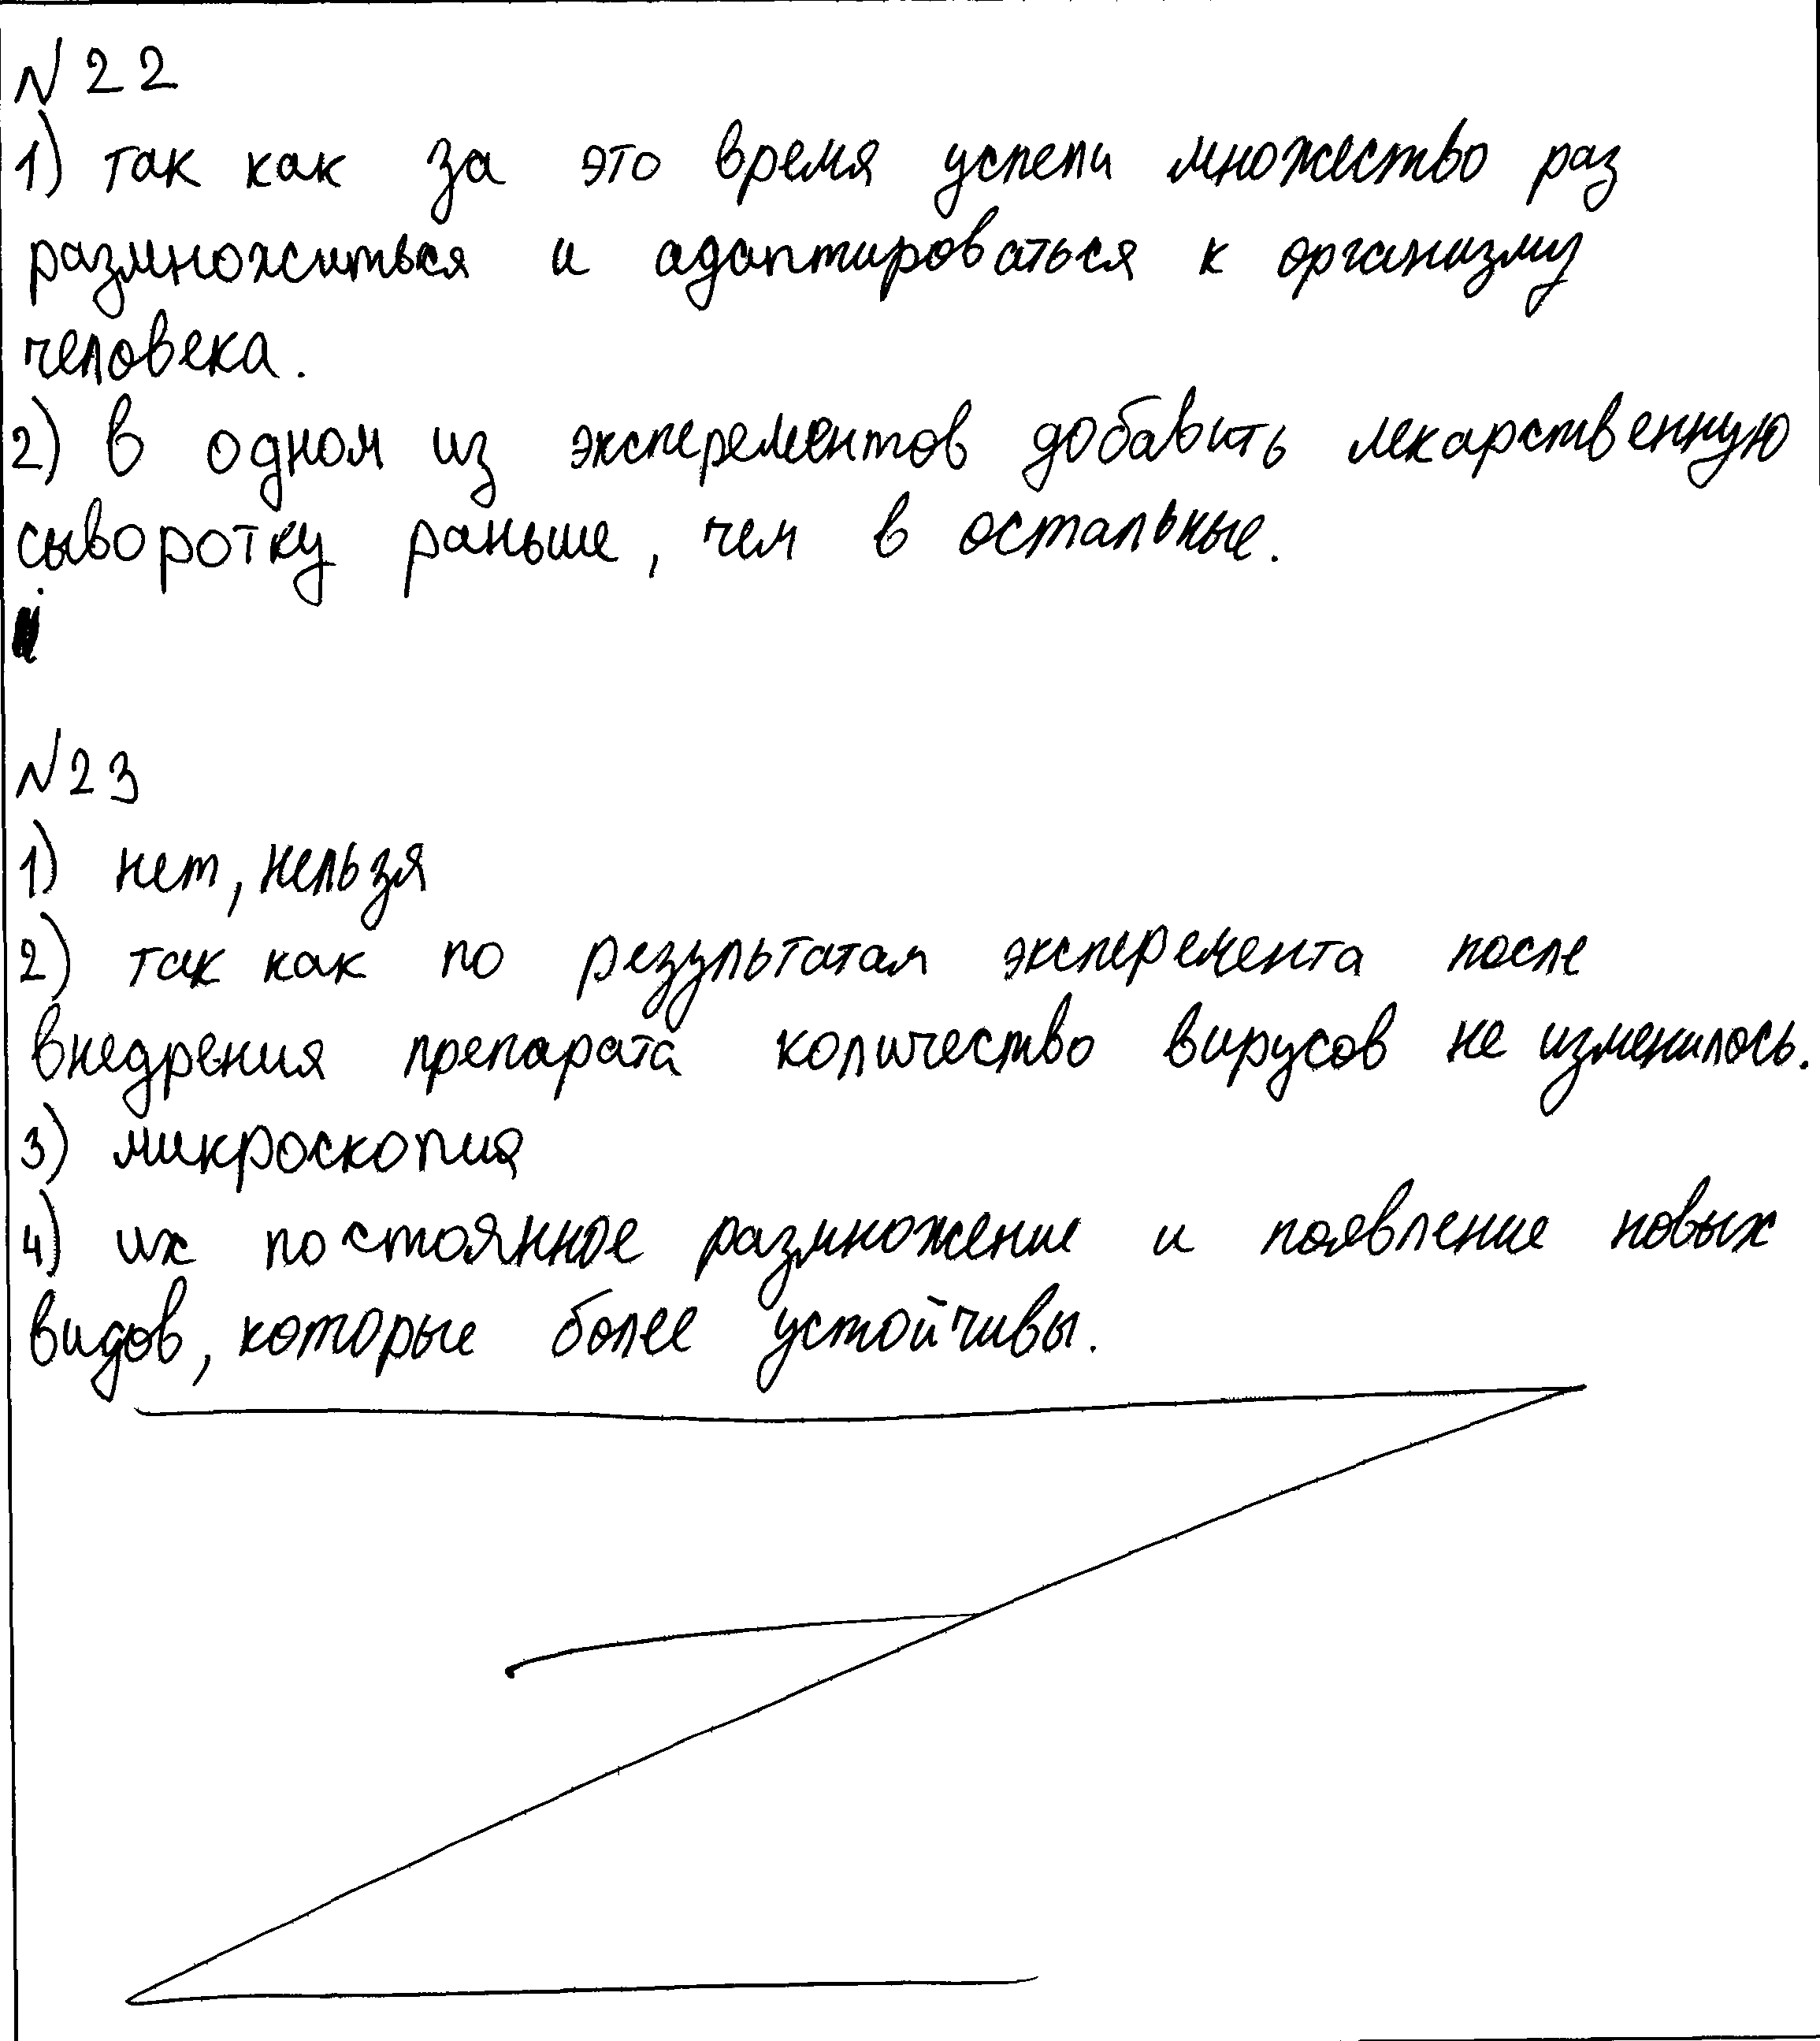 N 22
1) так как за это время успели множество раз
размножиться и адаптироваться к организму
человека.
2) в одном из эксперементов добавить лекарственную
сыворотку раньше, чем в остальные.
N 23
1) нет, нельзя
2) так как по результатам эксперемента после
внедрения препарата количество вирусов не изменилось.
3) микроскопия
4) их постоянное размножение и появление новых
видов, которые более устойчивы.